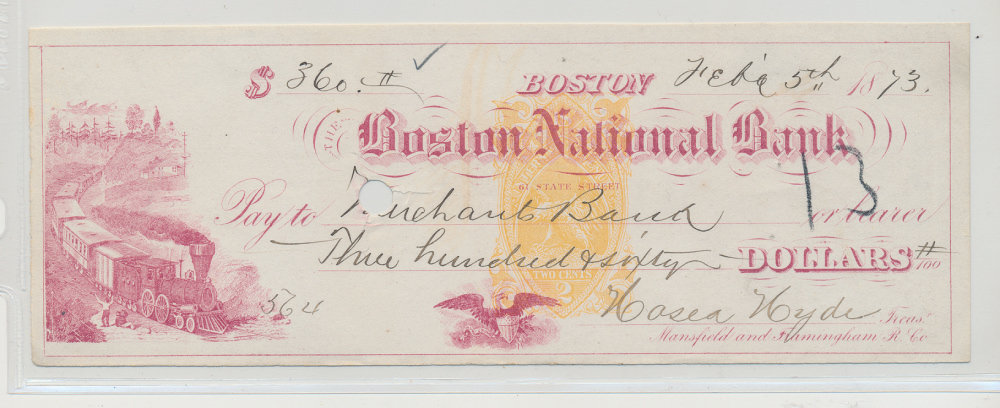 $ 360. #
BOSTON Feb'y 5th 1873.
THE Boston National Bank
61 STATE STREET
13
Pay to Merchants Bank or bearer
Three hundred & sixty DOLLARS #/100
TWO CENTS
2
564
Hosea Hyde Treas.r
Mansfield and Framingham R. Co